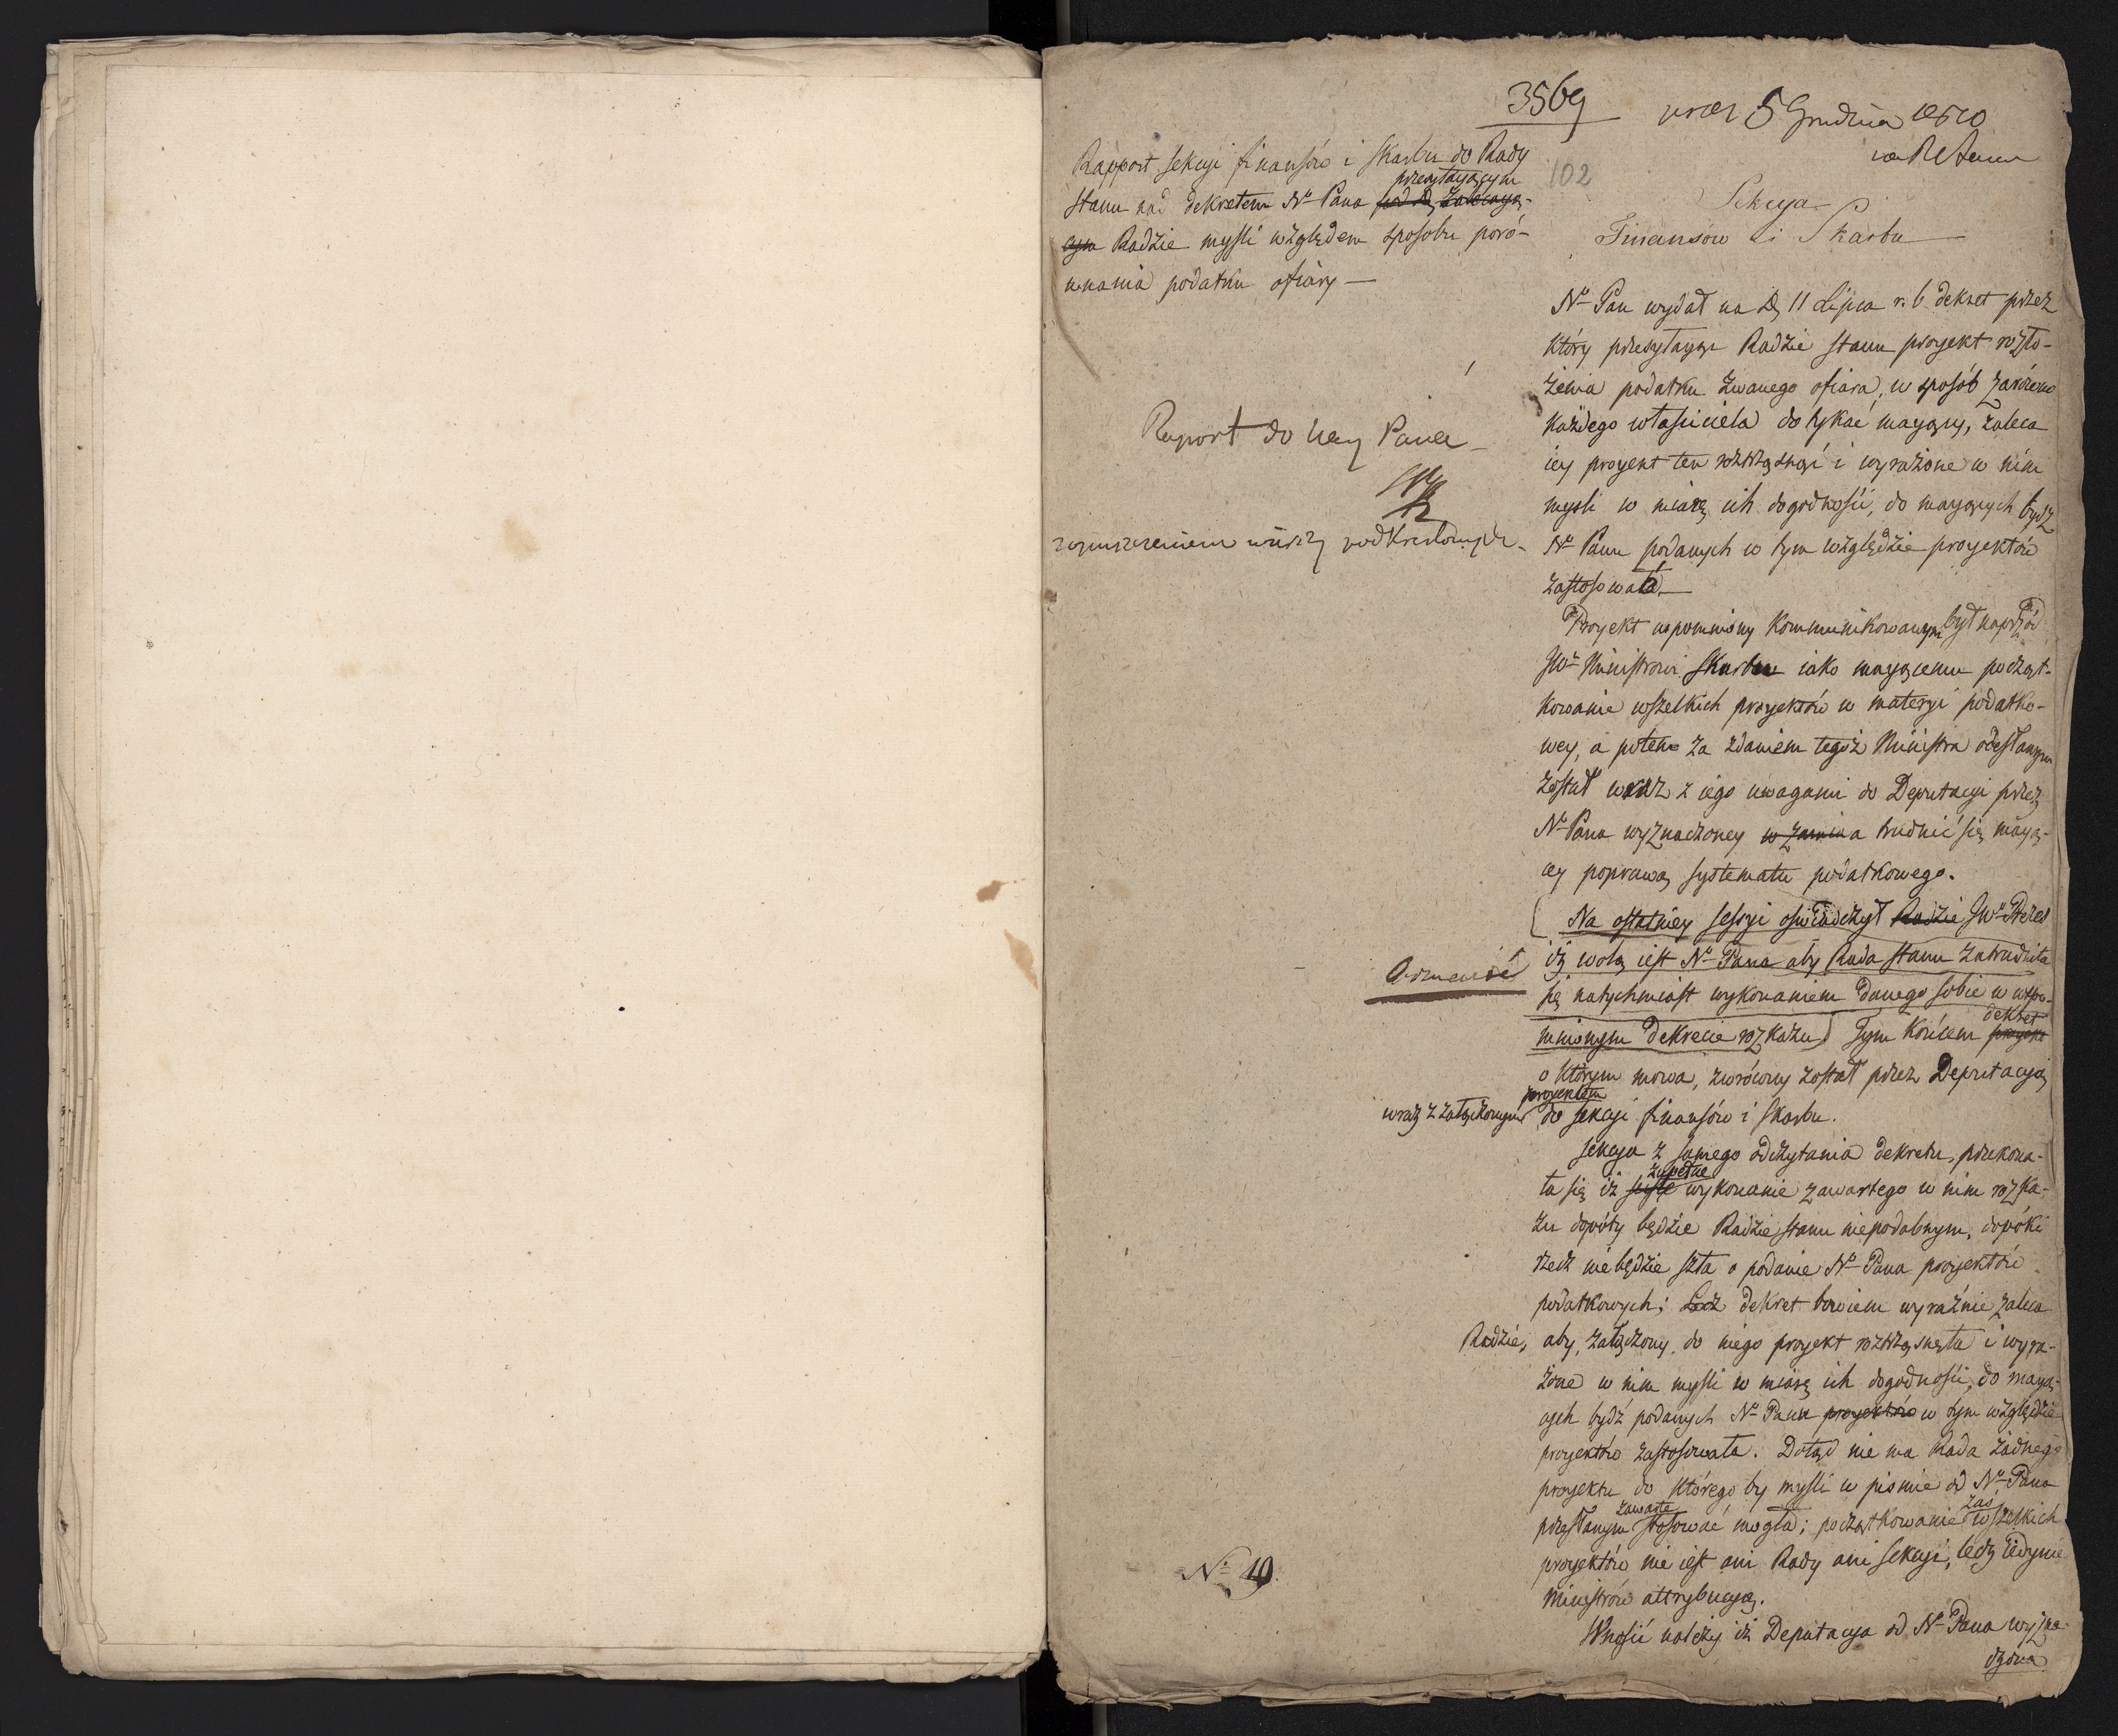 3569
5 Grudnia 1810
102
Rapport Sekcyi finansów i Skarbu do Rady
przesyłaiącym
Stanu nad dekretem Nº Pana pod d. zalecaią-
cym Radzie myśli względem sposobu poró-
wnania podatku ofiary —
Sekcya
Finansów i Skarbu
Raport do Nay Pana
z opuszczeniem wierszy podkreślonych
Nº Pan wydał na d. 11 Lipca r. b. dekret przez
który przesyłaiąc Radzie Stanu proyekt rozło-
żenia podatku zwanego ofiara, w sposób zarówno
każdego właściciela dotykać maiący, zaleca
iey proyekt ten roztrząsnąć i wyrażone w nim
mysli w miarę ich dogodności, do maiących bydź
Nº Panu podanych w tym względzie proyektów
zastosowała.
Proyekt wspomniony kommunikowanym był naprzód
JWº Ministrowi Skarbu iako maiącemu począt-
kowanie wszelkich proyektów w materyi podatko-
wey, a potem za zdaniem tegoż Ministra odesłanym
został wraz z iego uwagami do Deputacyi przez
Nº Pana wyznaczoney a trudnić się maią-
cey poprawą systematu podatkowego.
Na ostatniey sessyi oświadczył Radzie JWº Prezes
iż wolą iest Nº Pana aby Rada Stanu zatrudniła
się natychmiast wykonaniem danego sobie w wspo-
dekret
mnionym dekrecie rozkazu) Tym końcem proyekt
o którym mowa, zwrócony został przez Deputacyą
proyektem
wraz z załączonym do Sekcyi finansów i Skarbu.
Sekcya z samego odczytania dekretu, przekona-
zupełne
ła się iż ścisłe wykonanie zawartego w nim rozka-
zu dopóty będzie Radzie Stanu niepodobnym, dopóki
rzecz nie będzie szła o podanie Nº Pana proyektów
podatkowych; Lecz dekret bowiem wyraźnie zaleca
Radzie, aby, załączony do niego proyekt roztrząsnęła i wyra-
żone w nim mysli w miarę ich dogodności, do maią-
cych bydź podanych Nº Panu proyektów w tym względzie
proyektów zastosowała. Dotąd nie ma Rada żadnego
proyektu do którego by mysli w pismie od Nº Pana
zawarte zaś
przesłanym stosować mogła; początkowanie wszelkich
proyektów nie iest ani Rady ani Sekcyi, lecz iedynie
Ministrów attrybucyą.
Wnosić należy iż Deputacya od Nº Pana wyzna-
czona
Nº 19.